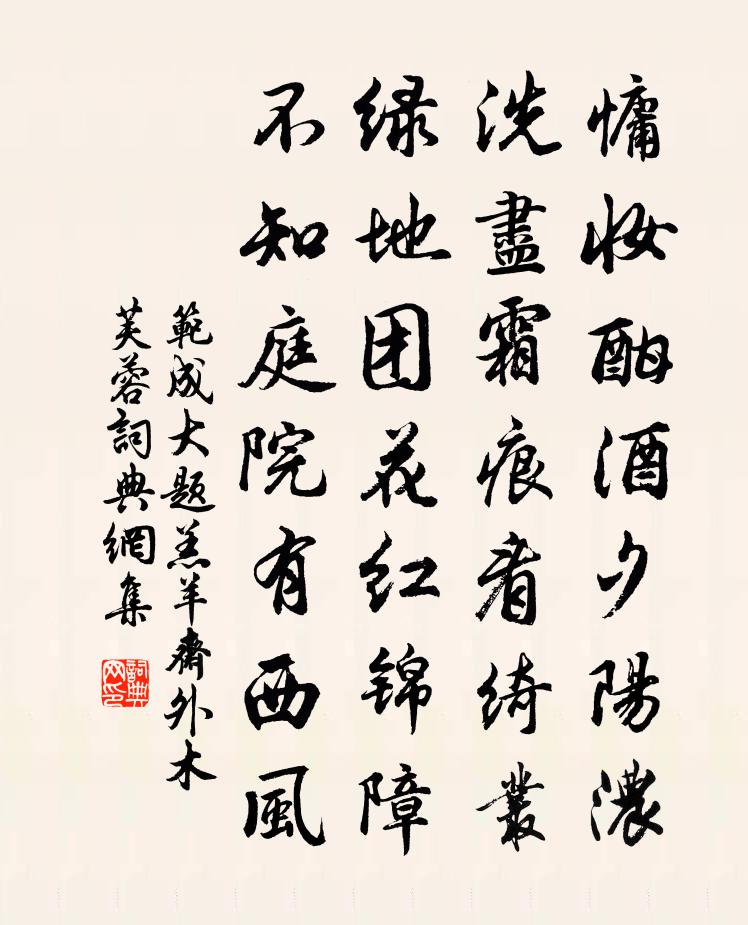 慵妆酣酒夕陽濃
洗盡霜痕看绮叢
绿地团花红锦障
不知庭院有西風
範成大题羔羊齋外木
芙蓉詞典網集
詞典网印